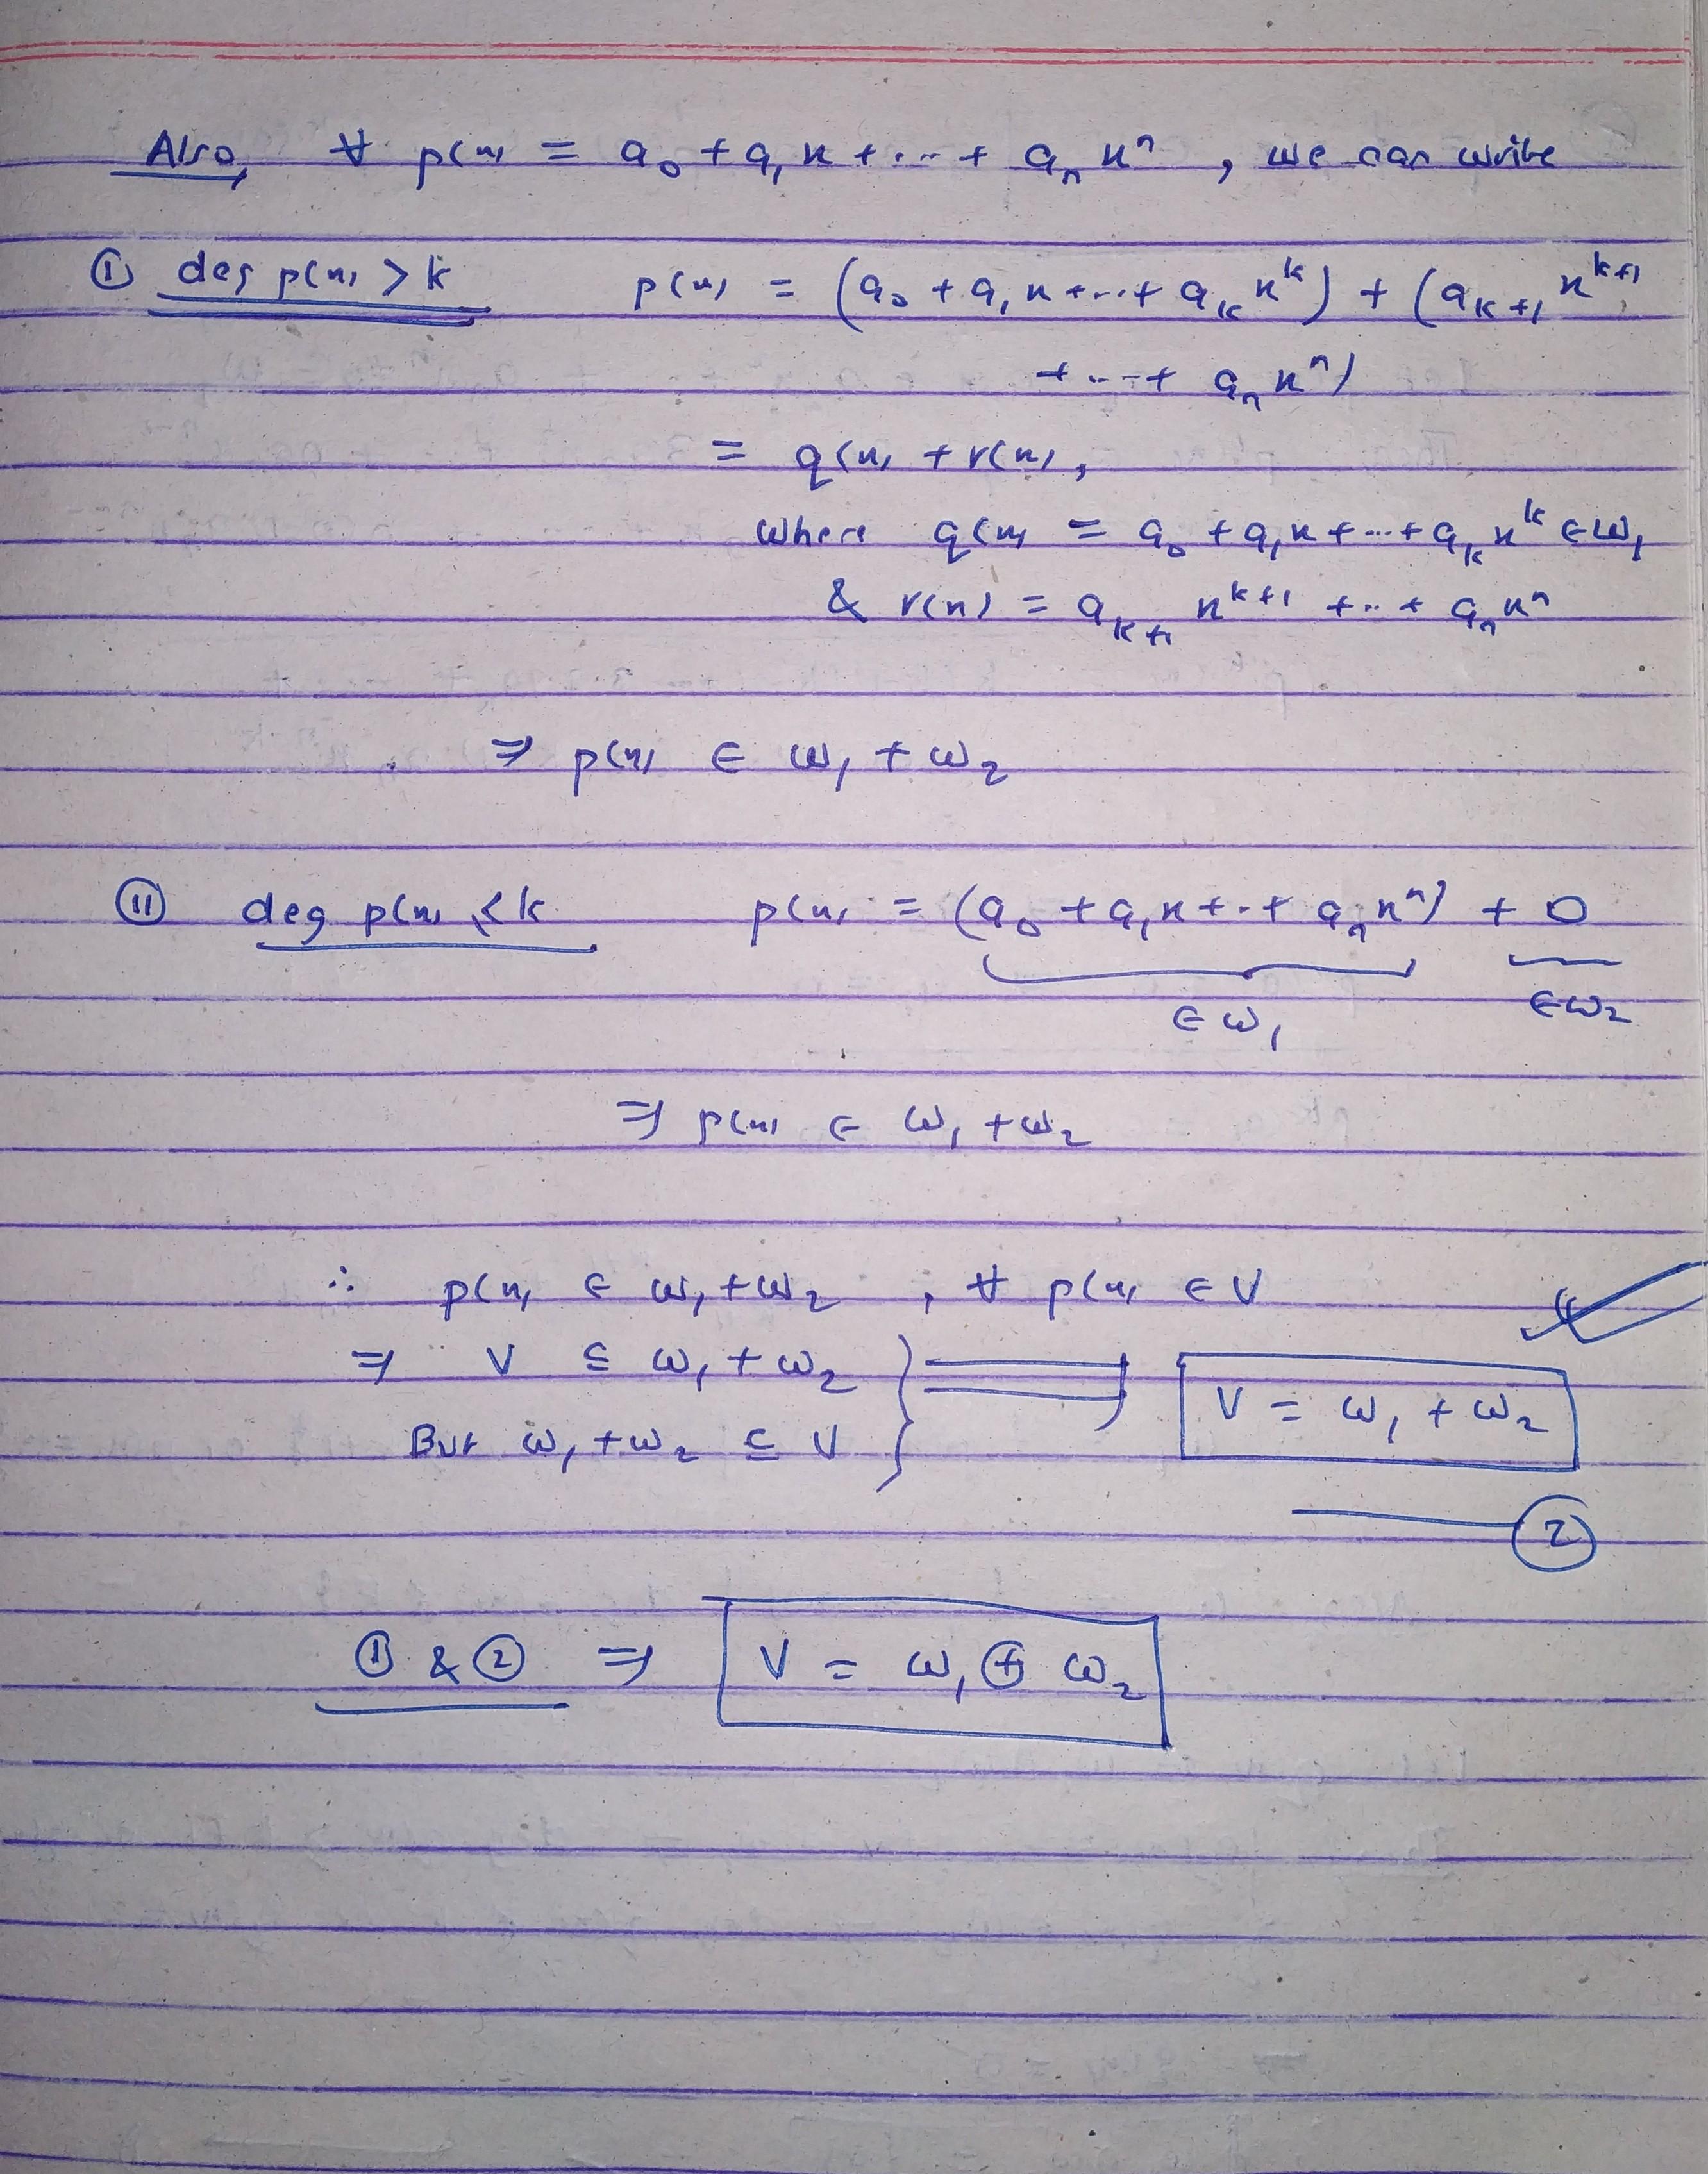 Also, ∀ p(x) = a₀ + a₁x + ... + aₙxⁿ , we can write
① deg p(x) > k p(x) = (a₀ + a₁x + ... + aₖxᵏ) + (aₖ₊₁xᵏ⁺¹
+ ... + aₙxⁿ)
= q(x) + r(x),
where q(x) = a₀ + a₁x + ... + aₖxᵏ ∈ W₁
& r(x) = aₖ₊₁ xᵏ⁺¹ + .. + aₙxⁿ
⇒ p(x) ∈ W₁ + W₂
⑪ deg p(x) ≤ k p(x) = (a₀ + a₁x + .. + aₙxⁿ) + 0
∈ W₁ ∈ W₂
⇒ p(x) ∈ W₁ + W₂
∴ p(x) ∈ W₁ + W₂ , ∀ p(x) ∈ V
⇒ V ⊆ W₁ + W₂ } ⇒ V = W₁ + W₂
But W₁ + W₂ ⊆ V
②
① & ② ⇒ V = W₁ ⊕ W₂